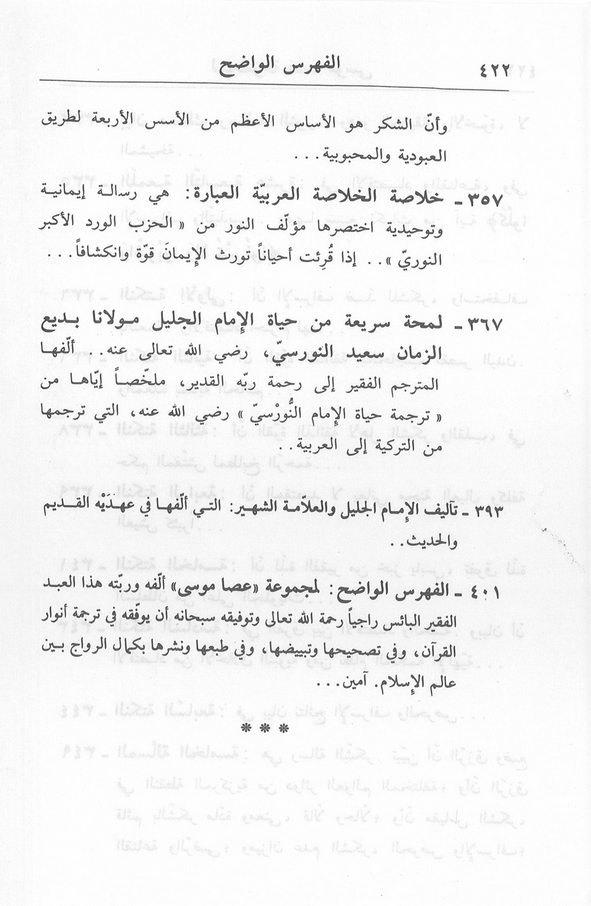 ٤٢٢
الفهرس الواضح
وأنّ الشكر هو الأساس الأعظم من الأسس الأربعة لطريق
العبودية والمحبوبية...
٣٥٧ - خلاصة الخلاصة العربيّة العبارة: هي رسالة إيمانية
وتوحيدية اختصرها مؤلّف النور من « الحزب الورد الأكبر
النوريّ ».. إذا قُرِئت أحياناً تورث الإيمانَ قوّة وانكشافاً...
٣٦٧ - لمحة سريعة من حياة الإمام الجليل مولانا بديع
الزمان سعيد النورسيّ، رضي الله تعالى عنه.. ألّفها
المترجم الفقير إلى رحمة ربّه القدير، ملخّصاً إيّاها من
« ترجمة حياة الإمام النُّورْسي » رضي الله عنه، التي ترجمها
من التركية إلى العربية..
٣٩٣ - تآليف الإمام الجليل والعلاّمة الشهير: التي ألّفها في عهدَيْه القديم
والحديث..
٤٠١ - الفهرس الواضح: لمجموعة «عصا موسى» ألّفه وربّته هذا العبد
الفقير البائس راجياً رحمة الله تعالى وتوفيقه سبحانه أن يوفّقه في ترجمة أنوار
القرآن، وفي تصحيحها وتبييضها، وفي طبعها ونشرها بكمال الرواج بين
عالم الإسلام. آمين...
* * *